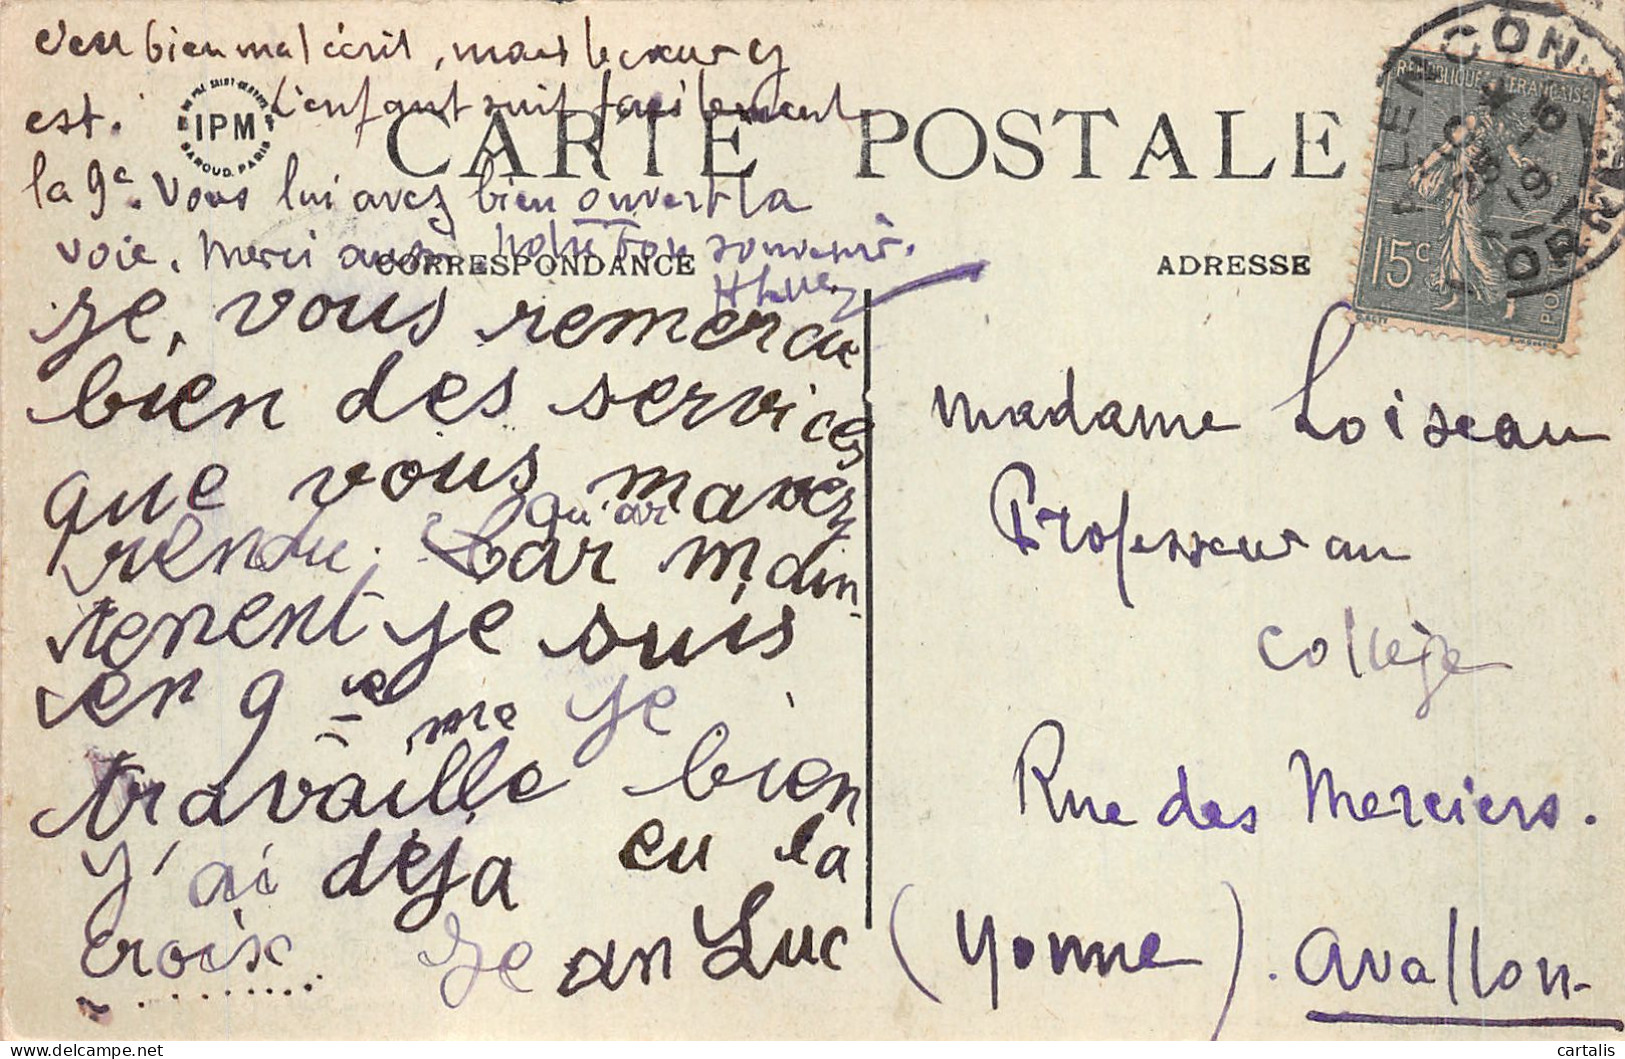 c'est bien mal écrit, mais le cœur y
est. l'enfant suit facilement
la 9e. Vous lui avez bien ouvert la
voie. Merci avec notre bon souvenir.
IPM
CARTE POSTALE
CORRESPONDANCE
Je, vous remercie
bien des services
que vous mavez
rendu. Car qu'ar main
tenent je suis
en 9 ème je me
travaille bien
J'ai déja eu la
croix Jean Luc
ADRESSE
REPUBLIQUE FRANÇAISE
15c
ALENCON
ORNE
Madame Loiseau
Professeur au
Collège
Rue des Merciers.
(Yonne). Avallon-
cartalis